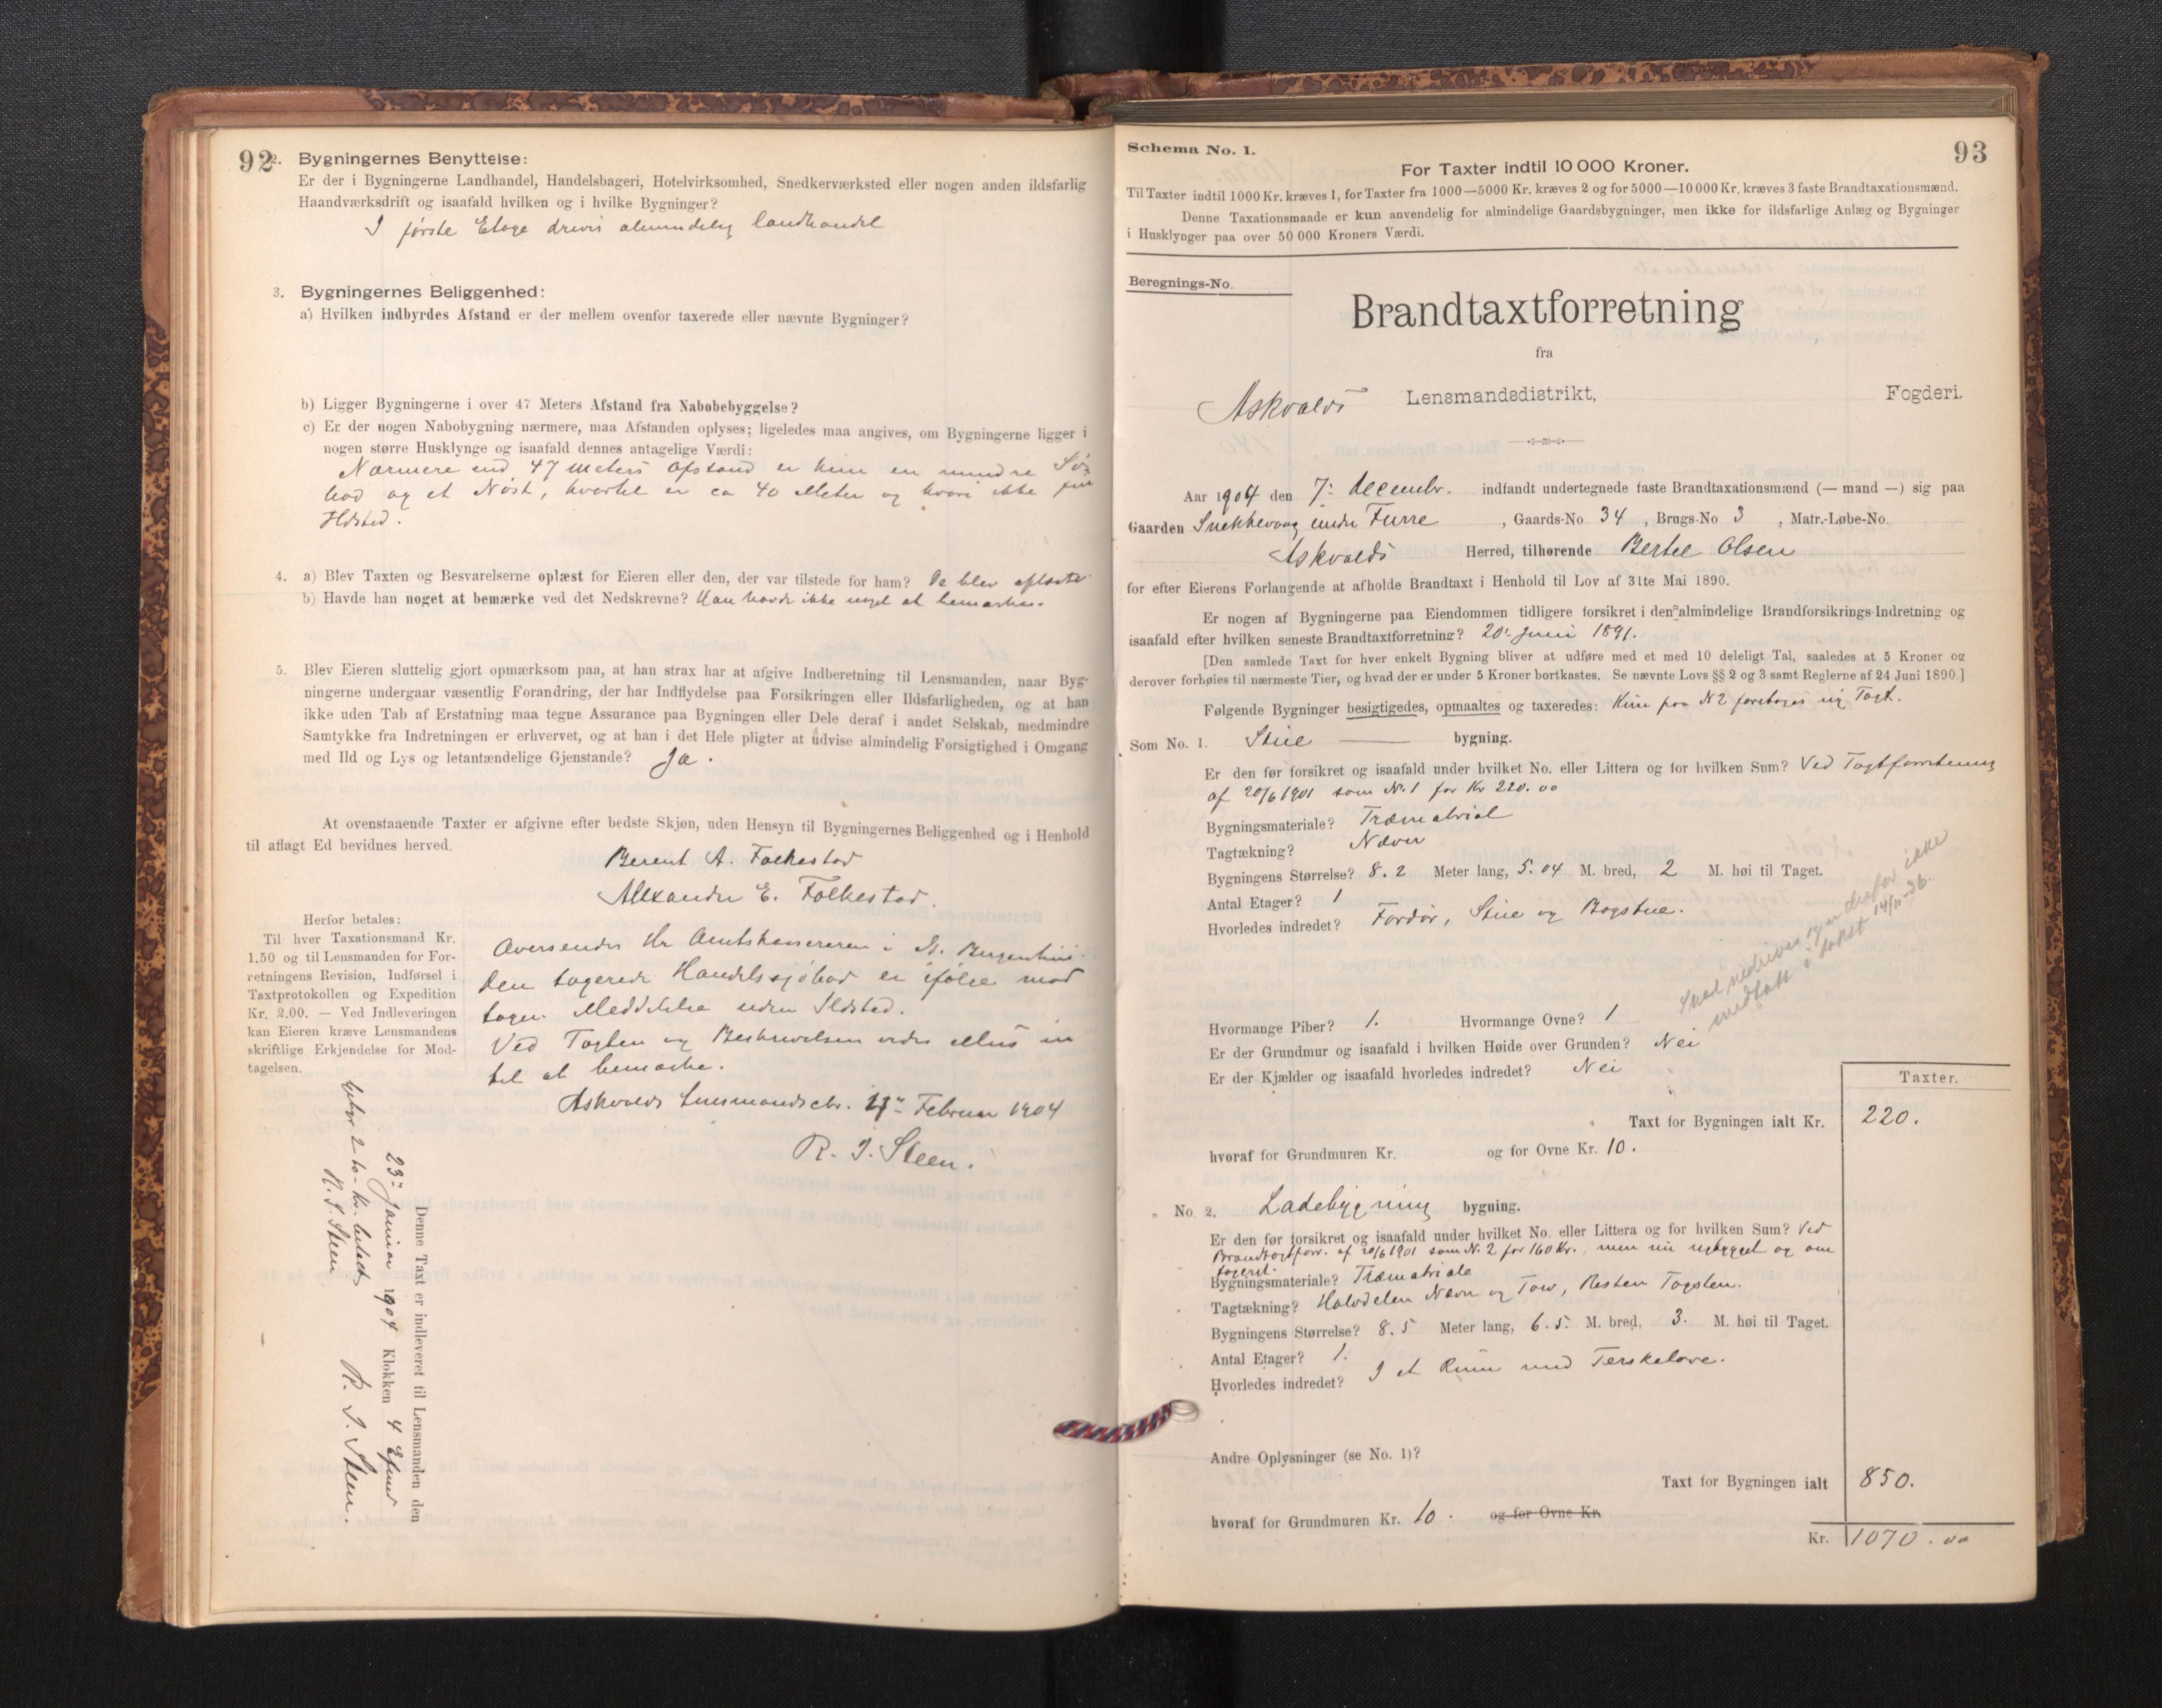 92
2. Bygningernes Benyttelse:
Er der i Bygningerne Landhandel, Handelsbageri, Hotelvirksomhed, Snedkerværksted eller nogen anden ildsfarlig
Haandværksdrift og isaafald hvilken og i hvilke Bygninger?
I første Etage drives almindelig landhandel
3. Bygningernes Beliggenhed:
a) Hvilken indbyrdes Afstand er der mellem ovenfor taxerede eller nævnte Bygninger?
b) Ligger Bygningerne i over 47 Meters Afstand fra Nabobebyggelse?
c) Er der nogen Nabobygning nærmere, maa Afstanden oplyses; ligeledes maa angives, om Bygningerne ligger i
nogen større Husklynge og isaafald dennes antagelige Værdi:
Nærmere end 47 Meters Afstand er kun en mindre Sø-
bod og et Nøst, hvortil er ca 40 Meter og hvori ikke fin
Ildsted.
4. a) Blev Taxten og Besvarelserne oplæst for Eieren eller den, der var tilstede for ham? De blev oplæste
b) Havde han noget at bemærke ved det Nedskrevne? Han havde ikke noget at bemærke.
5. Blev Eieren sluttelig gjort opmærksom paa, at han strax har at afgive Indberetning til Lensmanden, naar Byg-
ningerne undergaar væsentlig Forandring, der har Indflydelse paa Forsikringen eller Ildsfarligheden, og at han
ikke uden Tab af Erstatning maa tegne Assurance paa Bygningen eller Dele deraf i andet Selskab, medmindre
Samtykke fra Indretningen er erhvervet, og at han i det Hele pligter at udvise almindelig Forsigtighed i Omgang
med Ild og Lys og letantændelige Gjenstande? Ja.
At ovenstaaende Taxter er afgivne efter bedste Skjøn, uden Hensyn til Bygningernes Beliggenhed og i Henhold
til aflagt Ed bevidnes herved.
Berent A. Folkestad
Alexander E. Folkestad.
Herfor betales:
Til hver Taxationsmand Kr.
1.50 og til Lensmanden for For-
retningens Revision, Indførsel i
Taxtprotokollen og Expedition
Kr. 2.00. — Ved Indleveringen
kan Eieren kræve Lensmandens
skriftlige Erkjendelse for Mod-
tagelsen.
Oversendes Hr Amtskassereren i N. Bergenhus.
Den taxerede Handelssjøbod er ifølge mod
tagen Meddelelse uden Ildsted.
Ved Taxten og Beskrivelsen vides ellers in
tet at bemærke.
Askvolds Lensmandsctr. 11te Februar 1904
R. J. Steen.
Denne Taxt er indleveret til Lensmanden den
23de Januar 1904 Klokken 4 Efmd
R. J. Steen.
2 to Kr. betalt
R. J. Steen
93
Schema No. 1.
For Taxter indtil 10 000 Kroner.
Til Taxter indtil 1000 Kr. kræves 1, for Taxter fra 1000—5000 Kr. kræves 2 og for 5000—10 000 Kr. kræves 3 faste Brandtaxationsmænd.
Denne Taxationsmaade er kun anvendelig for almindelige Gaardsbygninger, men ikke for ildsfarlige Anlæg og Bygninger
i Husklynger paa over 50 000 Kroners Værdi.
Beregnings-No.
Brandtaxtforretning
fra
Askvolds Lensmandsdistrikt, Fogderi.
Aar 1904 den 7: Decembr. indfandt undertegnede faste Brandtaxationsmænd (— mand —) sig paa
Gaarden Snekkevaag under Furre, Gaards-No 34, Brugs-No 3, Matr.-Løbe-No.
Askvolds Herred, tilhørende Bertel Olsen
for efter Eierens Forlangende at afholde Brandtaxt i Henhold til Lov af 31te Mai 1890.
Er nogen af Bygningerne paa Eiendommen tidligere forsikret i den almindelige Brandforsikrings-Indretning og
isaafald efter hvilken seneste Brandtaxtforretning? 20: Juni 1891.
[Den samlede Taxt for hver enkelt Bygning bliver at udføre med et med 10 deleligt Tal, saaledes at 5 Kroner og
derover forhøies til nærmeste Tier, og hvad der er under 5 Kroner bortkastes. Se nævnte Lovs §§ 2 og 3 samt Reglerne af 24 Juni 1890.]
Følgende Bygninger besigtigedes, opmaaltes og taxeredes: Kun paa N 2 foretages ny Taxt.
Som No. 1. Stue bygning.
Er den før forsikret og isaafald under hvilket No. eller Littera og for hvilken Sum? Ved Taxtforretning
af 20/6 1901 som N. 1 for Kr 220.00
Bygningsmateriale? Træmatrial
Tagtækning? Næver
Bygningens Størrelse? 8.2 Meter lang, 5.04 M. bred, 2 M. høi til Taget.
Antal Etager? 1
Hvorledes indredet? Fordør, Stue og Bagstue.
nedrives og er derfor ikke
medtatt i taket 14/11-36.
Hvormange Piber? 1. Hvormange Ovne? 1
Er der Grundmur og isaafald i hvilken Høide over Grunden? Nei
Er der Kjælder og isaafald hvorledes indredet? Nei
Taxter.
Taxt for Bygningen ialt Kr. 220.
hvoraf for Grundmuren Kr. og for Ovne Kr. 10.
" No 2. Ladebygning bygning.
Er den før forsikret og isaafald under hvilket No. eller Littera og for hvilken Sum? Ved
Brandtaxtforr. af 20/6 1901 som N. 2 for 160 Kr., men nu nybygget og om
taxeret.
Bygningsmateriale? Træmatriale
Tagtækning? Halvdelen Næver og Torv, Resten Tagsten.
Bygningens Størrelse? 8.5 Meter lang, 6.5. M. bred, 3. M. høi til Taget.
Antal Etager? 1.
Hvorledes indredet? I et Rum med Tærskelove.
Andre Oplysninger (se No. 1)?
Taxt for Bygningen ialt 850.
hvoraf for Grundmuren Kr. 10. og for Ovne Kr.
Kr. 1070.00